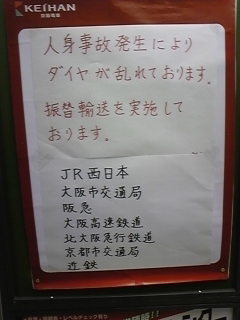 KEIHAN
京阪電車
人身事故発生により
ダイヤが乱れております。
振替輸送を実施して
おります。
JR西日本
大阪市交通局
阪急
大阪高速鉄道
北大阪急行鉄道
京都市交通局
近鉄